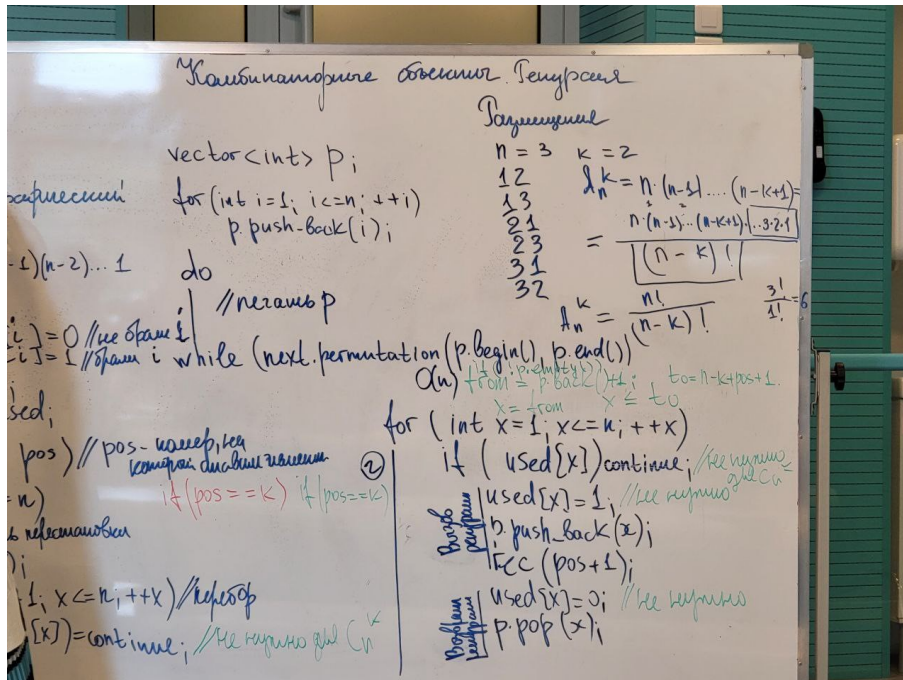 Комбинаторные объекты. Рекурсия
vector<int> p;
for (int i=1; i<=n; ++i)
p.push-back(i);
do
//печать p
while (next.permutation(p.begin(), p.end())
O(n)
Размещения
n = 3 k = 2
12
13
21
23
31
32
A_n^k = n·(n-1)....(n-k+1)=
= n·(n-1)...(n-k+1)·...3·2·1 / (n-k)!
A_n^k = n! / (n-k)! 3!/1! = 6
-1)(n-2)... 1
i] = 0 //не брали i
i] = 1 //брали i
sed;
pos) //pos- номер, на
который ставим элемент
= n)
if (pos==k) if (pos==k)
перестановки
);
1; x<=n; ++x) //перебор
[x])=continue; //не нужно для C_n^k
if (!p.empty())
from = p.back()+1; to=n-k+pos+1.
x = from x ≤ to
for (int x=1; x<=n; ++x)
②
if ( used[x]) continue; //не нужно
для C_n^k
Вызов
рекурсии
used[x]=1; //не нужно
p.push_back(x);
rec (pos+1);
Возврат
рекурсии
used[x]=0; //не нужно
p.pop(x);